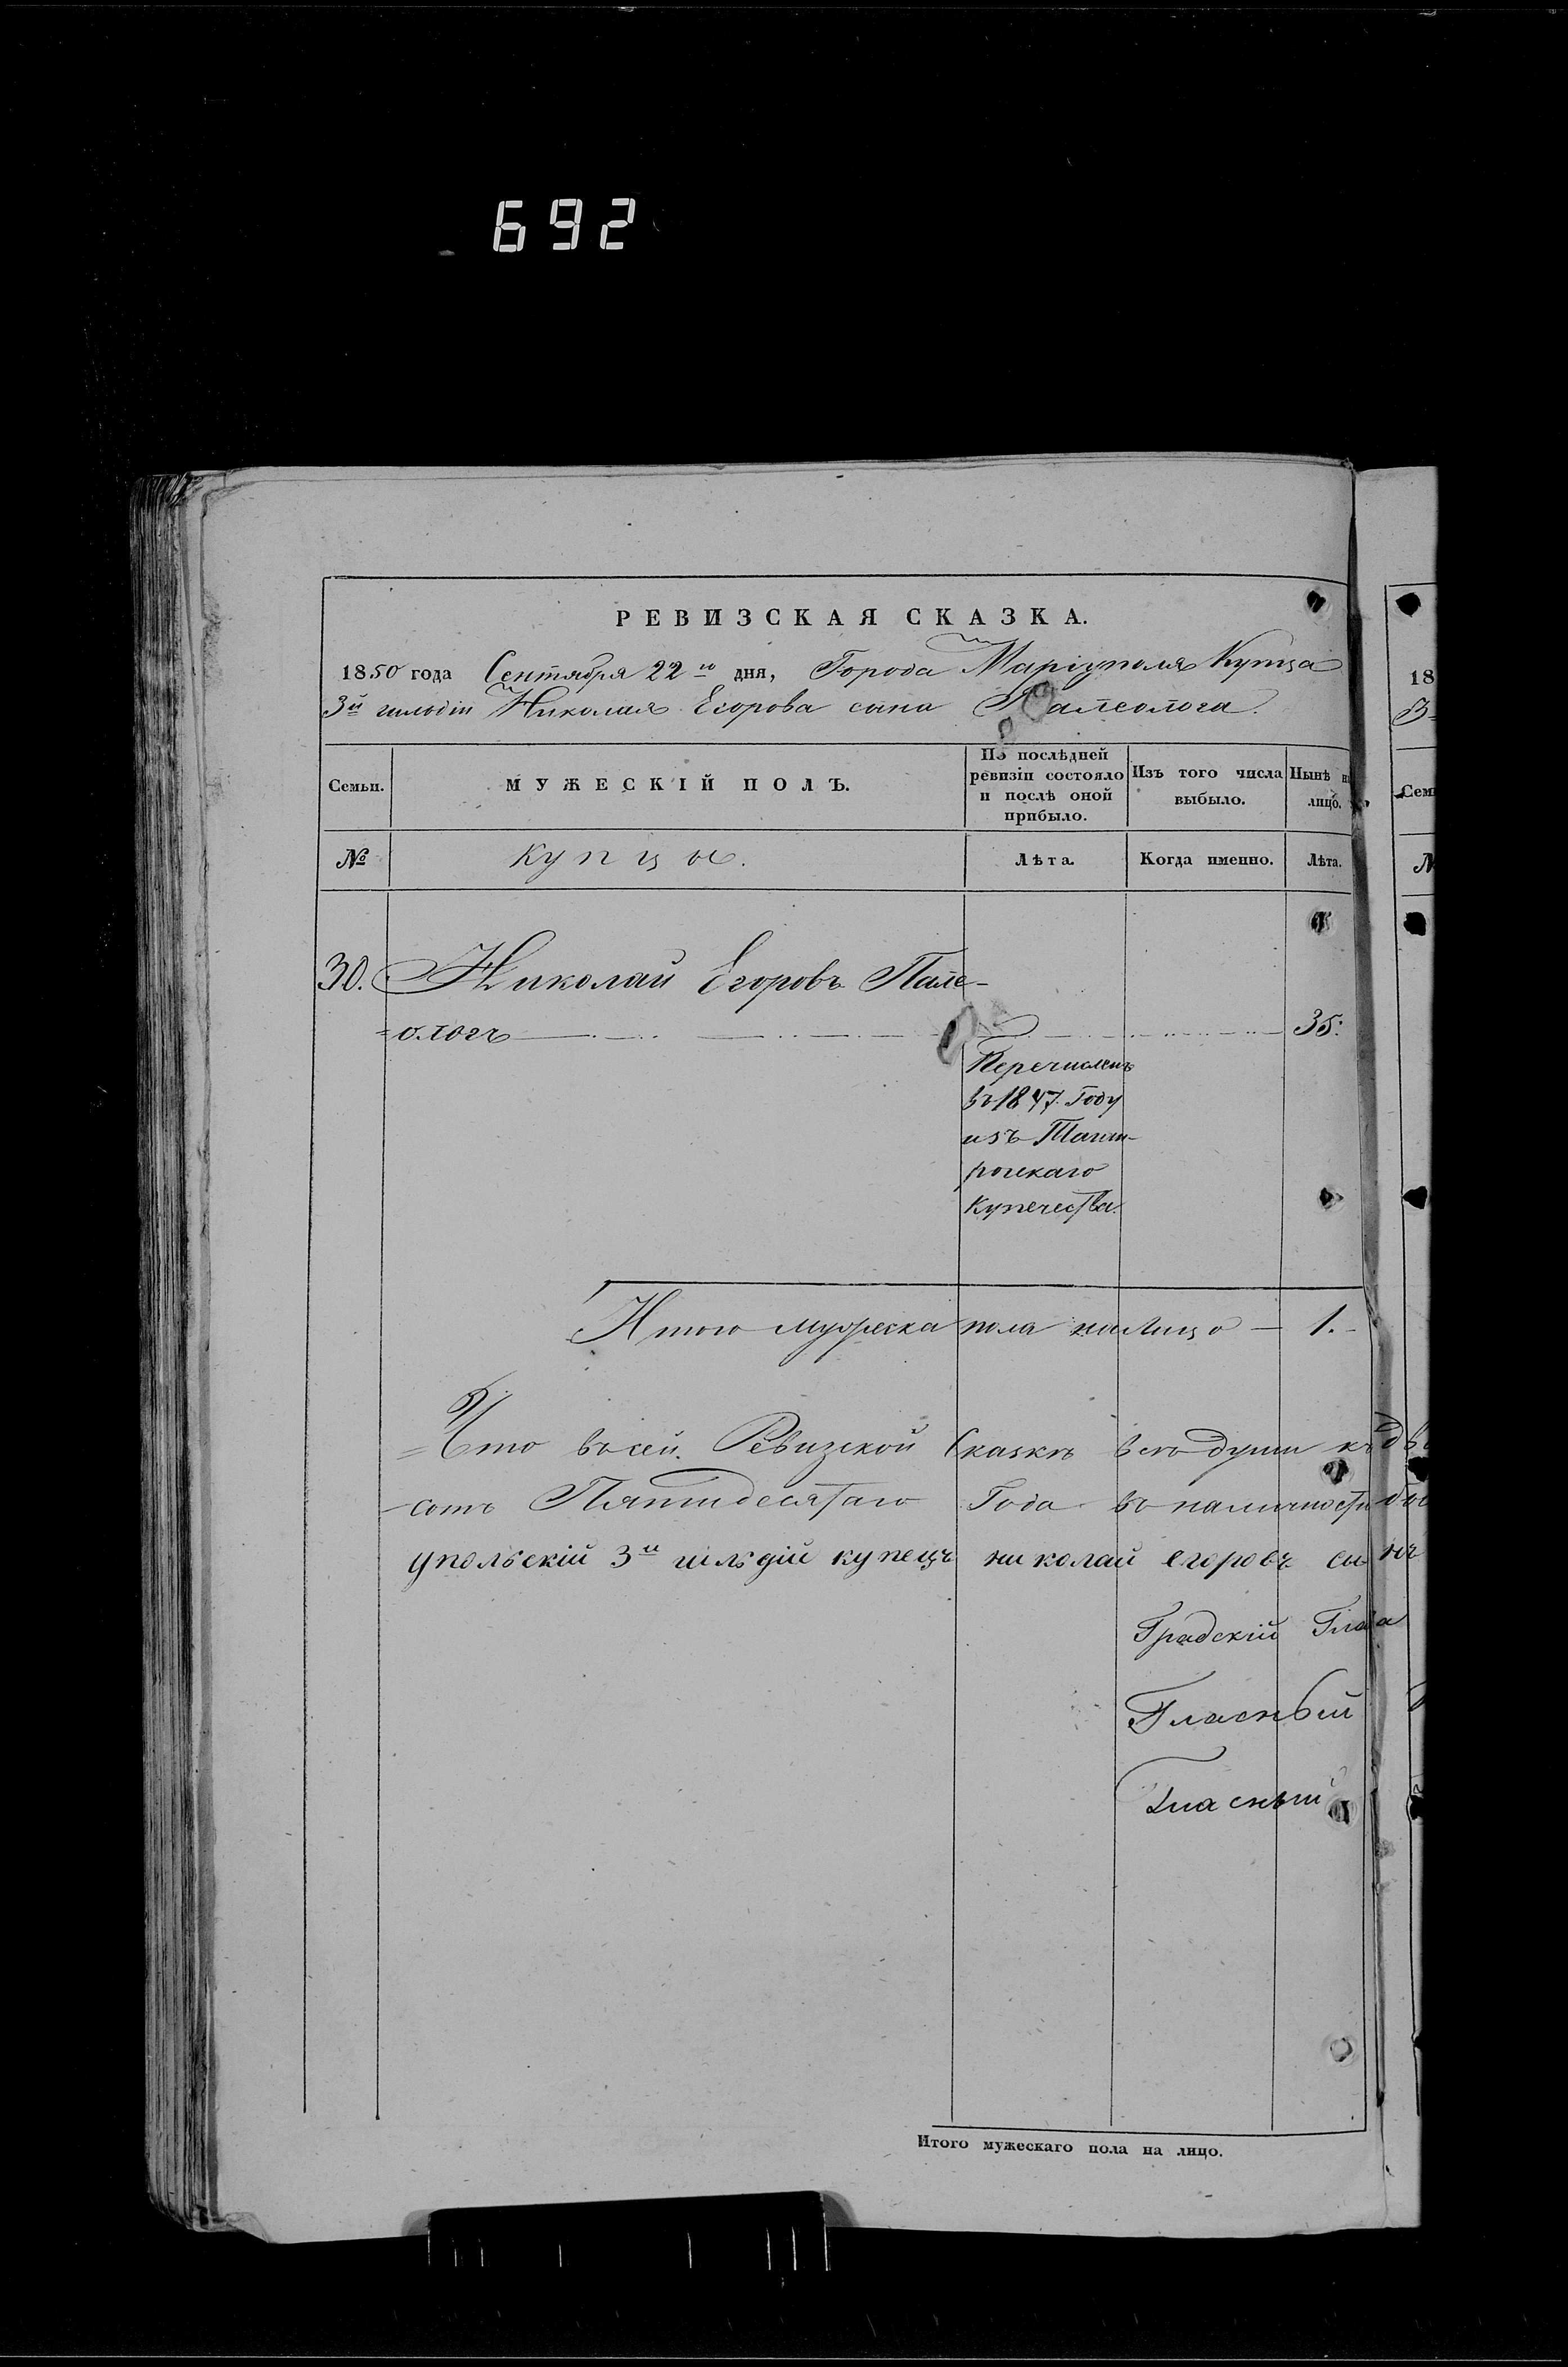 692
РЕВИЗСКАЯ СКАЗКА.
1850 года Сентября 22го дня, Города Маріуполя Купца
3й гильдіи Николая Егорова сына Палеолога.
Семьи.
МУЖЕСКІЙ ПОЛЪ.
По послѣдней ревизіи состояло и послѣ оной прибыло.
Изъ того числа выбыло.
Нынѣ на лицо.
№
Купцы.
Лѣта.
Когда именно.
Лѣта.
30. Николай Егоровъ Пале-
=ологъ 35.
Перечисленъ
въ 1847. Году
изъ Таган-
рогскаго
Купечества.
Итого мужеска пола налицо — 1.
Что въ сей Ревизской Сказкѣ всѣ души къ
сотъ Пятидесятаго Года въ наличности
упольскій 3й гильдіи купецъ николай егоровъ сынъ
Градскій Глава
Гласный
Гласный
Итого мужескаго пола на лицо.
18
3
Сем
№